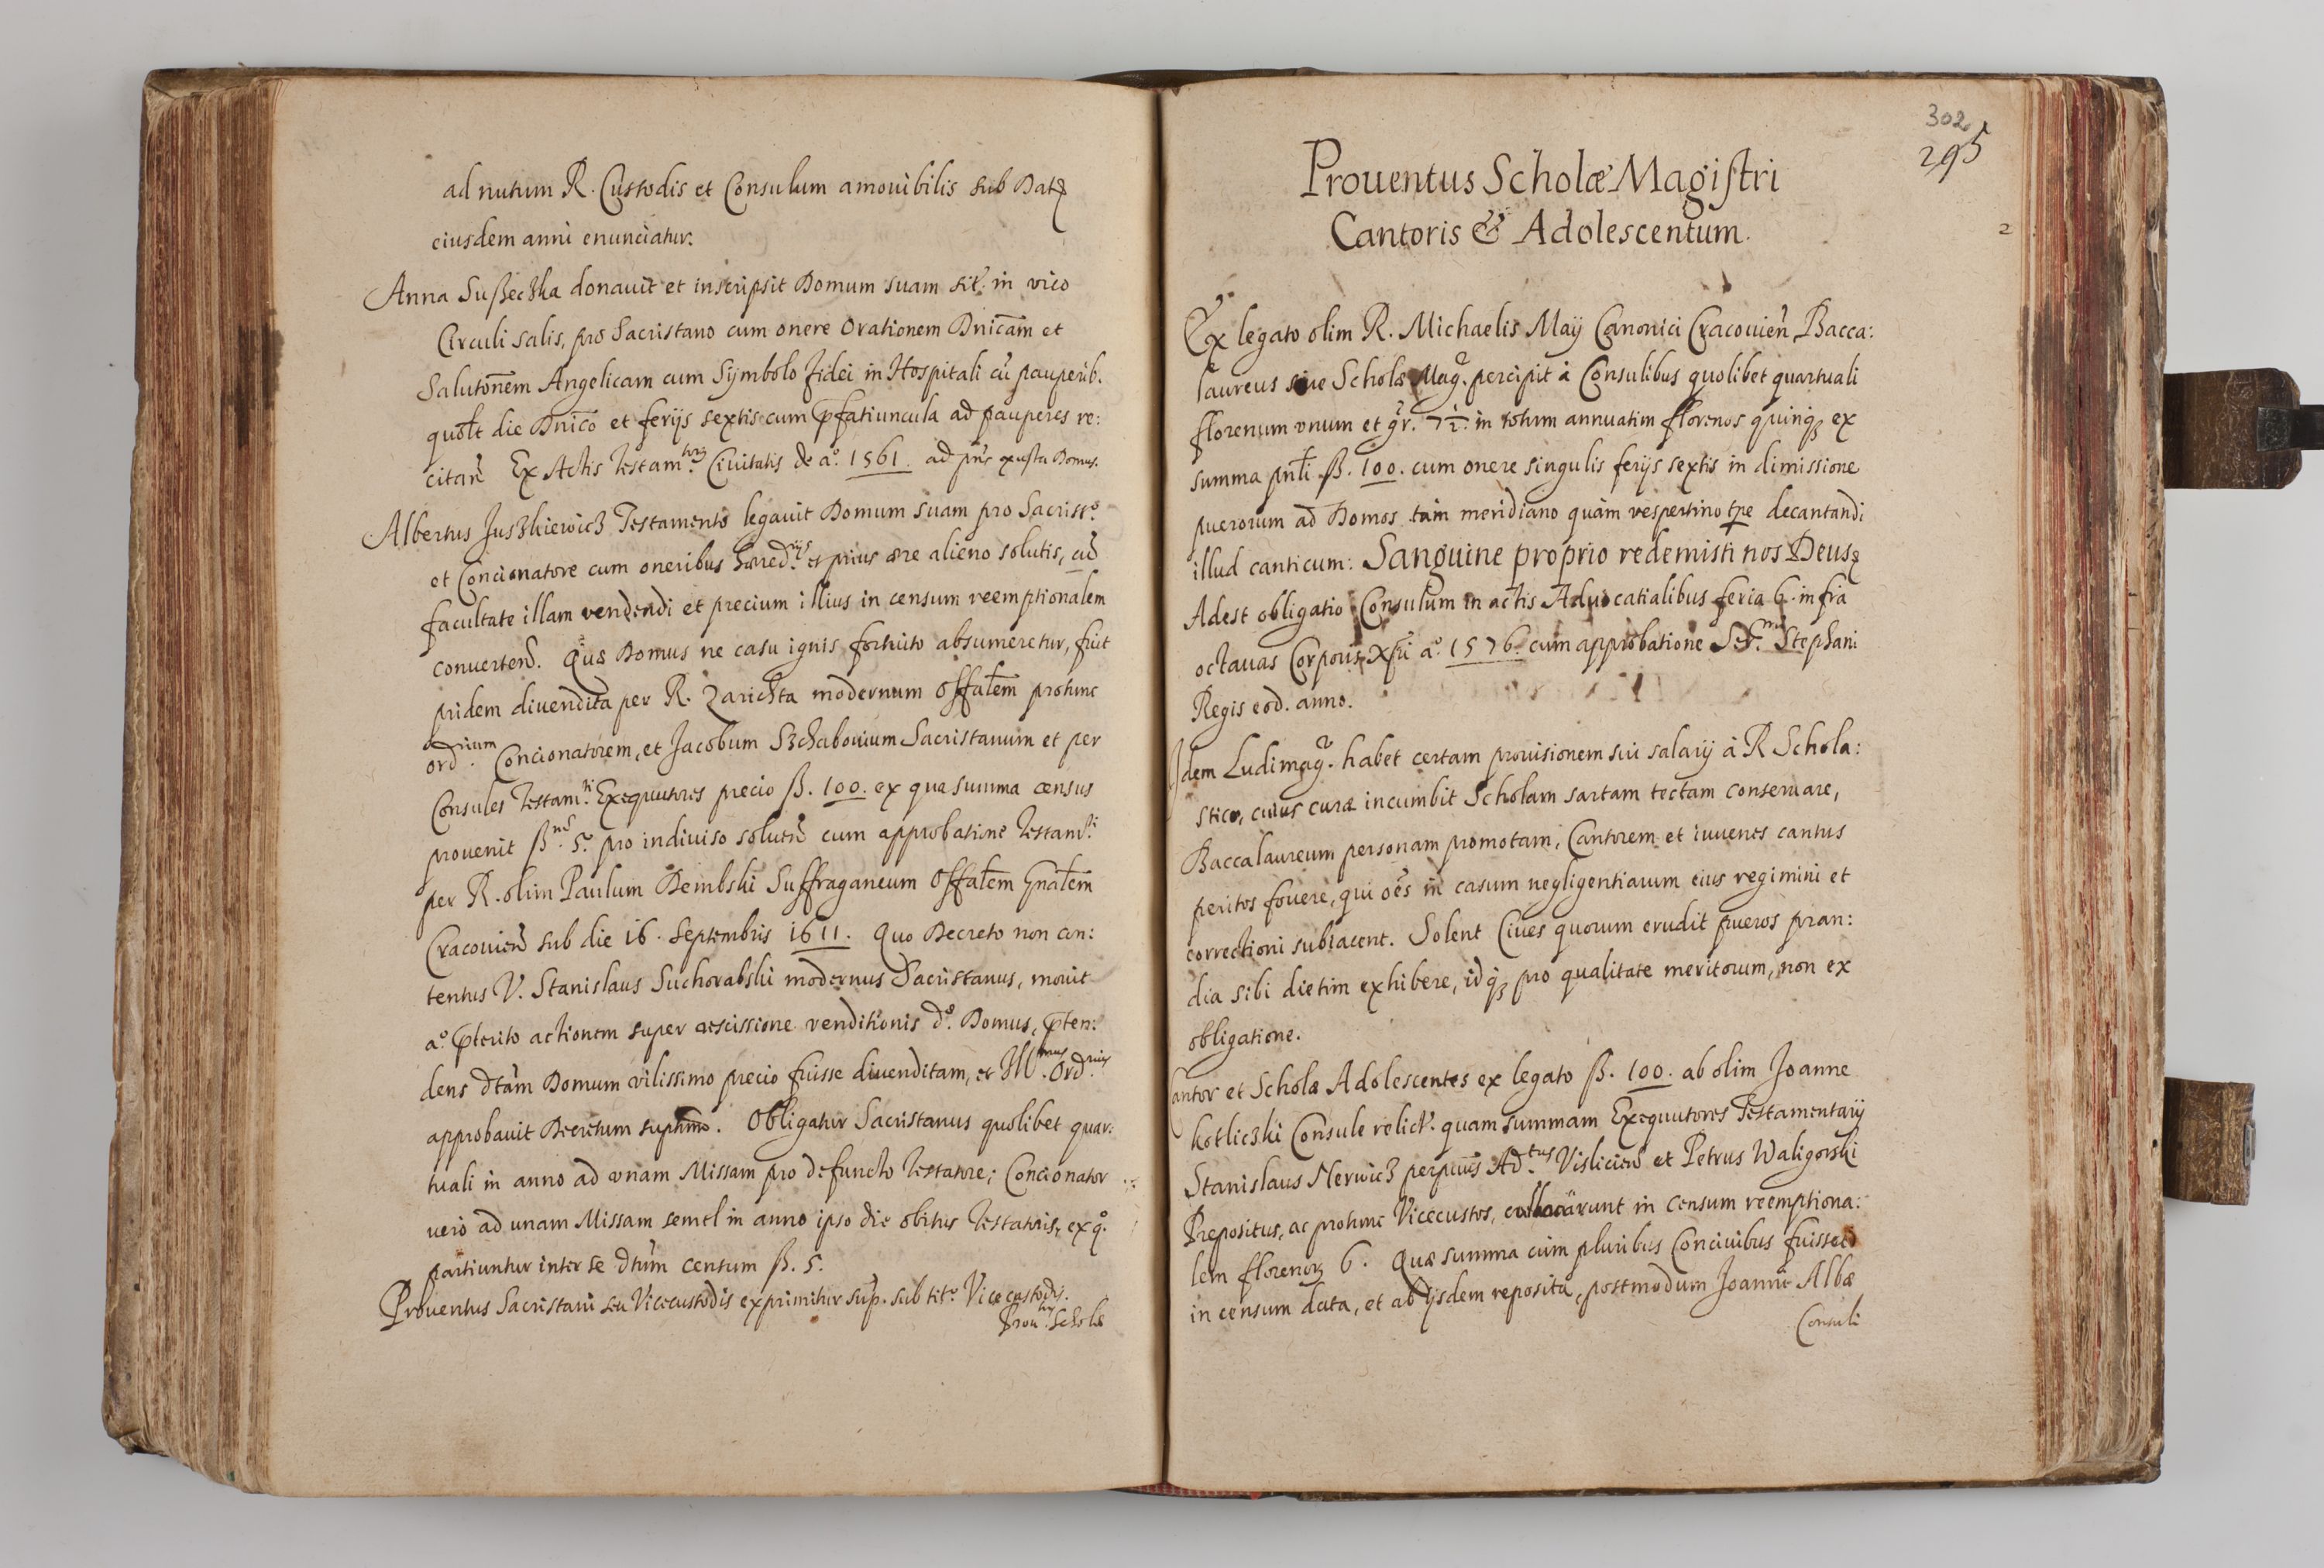 ad nutum R. Custodis et Consulum amouibilis sub Datꝫ
eiusdem anni enunciatur.
Anna Sußeczka donauit et inscripsit Domum suam sit. in vico
Circuli salis, pro Sacristano cum onere Orationem Dnicam et
Salutonem Angelicam cum Symbolo Fidei in Hospitali cū pauperib.
quolt die Dnico et ferijs sextis cum pfatiuncula ad pauperes re:
citan Ex Actis Testam. Civitatis de a.º 1561. ad pns exusta Domus.
Albertus Juszkiewicz Testamento legauit Domum suam pro Sacrist.º
et Concionatore cum oneribus hæred. et prius ære alieno solutis, cū
facultate illam vendendi et precium illius in censum reemptionalem
conuerten. Quæ Domus ne casu ignis fortuito absumeretur, fuit
pridem diuendita per R. Zarichta modernum Offalem protunc
ord.rium Concionatorem, et Jacobum Szchabouium Sacristanum et per
Consules Testam.ti Exequutores precio ß. 100. ex qua summa census
prouenit ß. 5. pro indiuiso soluen cum approbatione Testam.ti
per R. olim Paulum Dembski Suffraganeum Offalem Gnalem
Cracouien sub die 16. Septembris 1611. Quo Decreto non con:
tentus V. Stanislaus Suchorabski modernus Sacristanus, mouit
a.º pterito actionem super rescissione venditionis d.º Domus, pten:
dens dtam Domum vilissimo precio fuisse diuenditam, et Ill.mus Ord.rius
approbauit Decretum suphmo. Obligatur Sacristanus quolibet quar:
tuali in anno ad vnam Missam pro defuncto Testatore; Concionator
vero ad unam Missam semel in anno ipso die obitus Testatoris, ex q.º
partiuntur inter se dtum censum ß. 5.
Prouentus Sacristani seu Vicecustodis exprimitur sup. sub tit.º Vicecustodis.
Prou. Scholæ
302
295
Prouentus Scholæ Magistri
Cantoris & Adolescentum.
2
Ex legato olim R. Michaelis Maij Canonici Cracouien Bacca:
laureus siue Scholæ Mag. percipit à Consulibus quolibet quartuali
florenum vnum et gr. 7 1/2. in totum annuatim florenos quinqꝫ ex
summa pnli ß. 100. cum onere singulis ferijs sextis in dimissione
puerorum ad Domos tàm meridiano quàm vespertino tpe decantandi
illud canticum: Sanguine proprio redemisti nos Deusꝫ
Adest obligatio Consulum in actis Aduocatialibus feria 6. infra
octauas Corporis Xpi a.º 1576. cum approbatione Ser.mi Stephani
Regis eod. anno.
Idem Ludimag. habet certam prouisionem sui salarij à R Schola:
stico, cuius curæ incumbit Scholam sartam tectam conseruare,
Baccalaureum personam promotam, Cantorem et iuuenes cantus
peritos fouere, qui oēs in casum negligentiarum eius regimini et
correctioni subiacent. Solent Ciues quorum erudit pueros pran:
dia sibi dietim exhibere, idqꝫ pro qualitate meritorum, non ex
obligatione.
Cantor et Scholæ Adolescentes ex legato ß. 100. ab olim Joanne
Kotliczki Consule relict. quam summam Exequutores Testamentarij
Stanislaus Herwicz perpuus Ad.tus Vislicien et Petrus Waligorski
Prepositus, ac protunc Vicecustos, in censum reemptiona:
lem florenoꝝ 6. Quæ summa cùm pluribus Conciuibus fuisset
in censum data, et ab ijsdem reposita, postmodum Joanni Albæ
Consuli